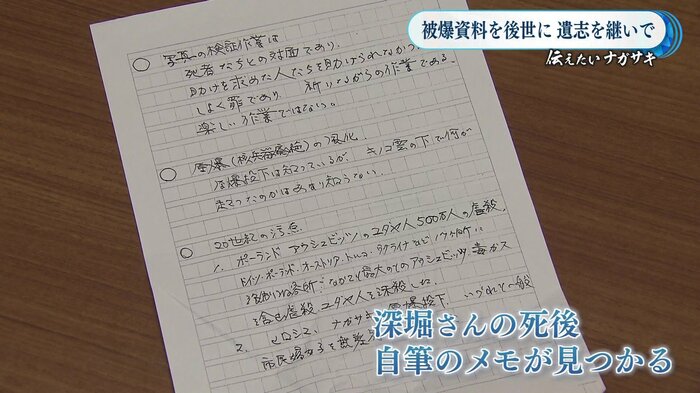 被爆資料を後世に 遺志を継いで
伝えたいナガサキ
○ 写真の検証作業は
死者たちとの対面であり、
助けを求めた人たちを助けられなかっ
しょく罪であり 祈りながらの作業である。
楽しい作業ではない。
○ 原爆(核兵器
の下で何が
原爆投下は知っているが、キノコ雲
起こったのかはあまり知らない。
○ 20世紀の汚点
1. ポーランド アウシュビッツのユダヤ人500万人の虐殺。
ドイツ・ポーランド・オーストリア・トルコ・ウクライナなど
最大のアウシュビッツ 毒ガス
虐殺 ユダヤ人を
2. ヒロシマ、ナガサキ 原爆投下 いづれも一般
市民
深堀さんの死後
自筆のメモが見つかる